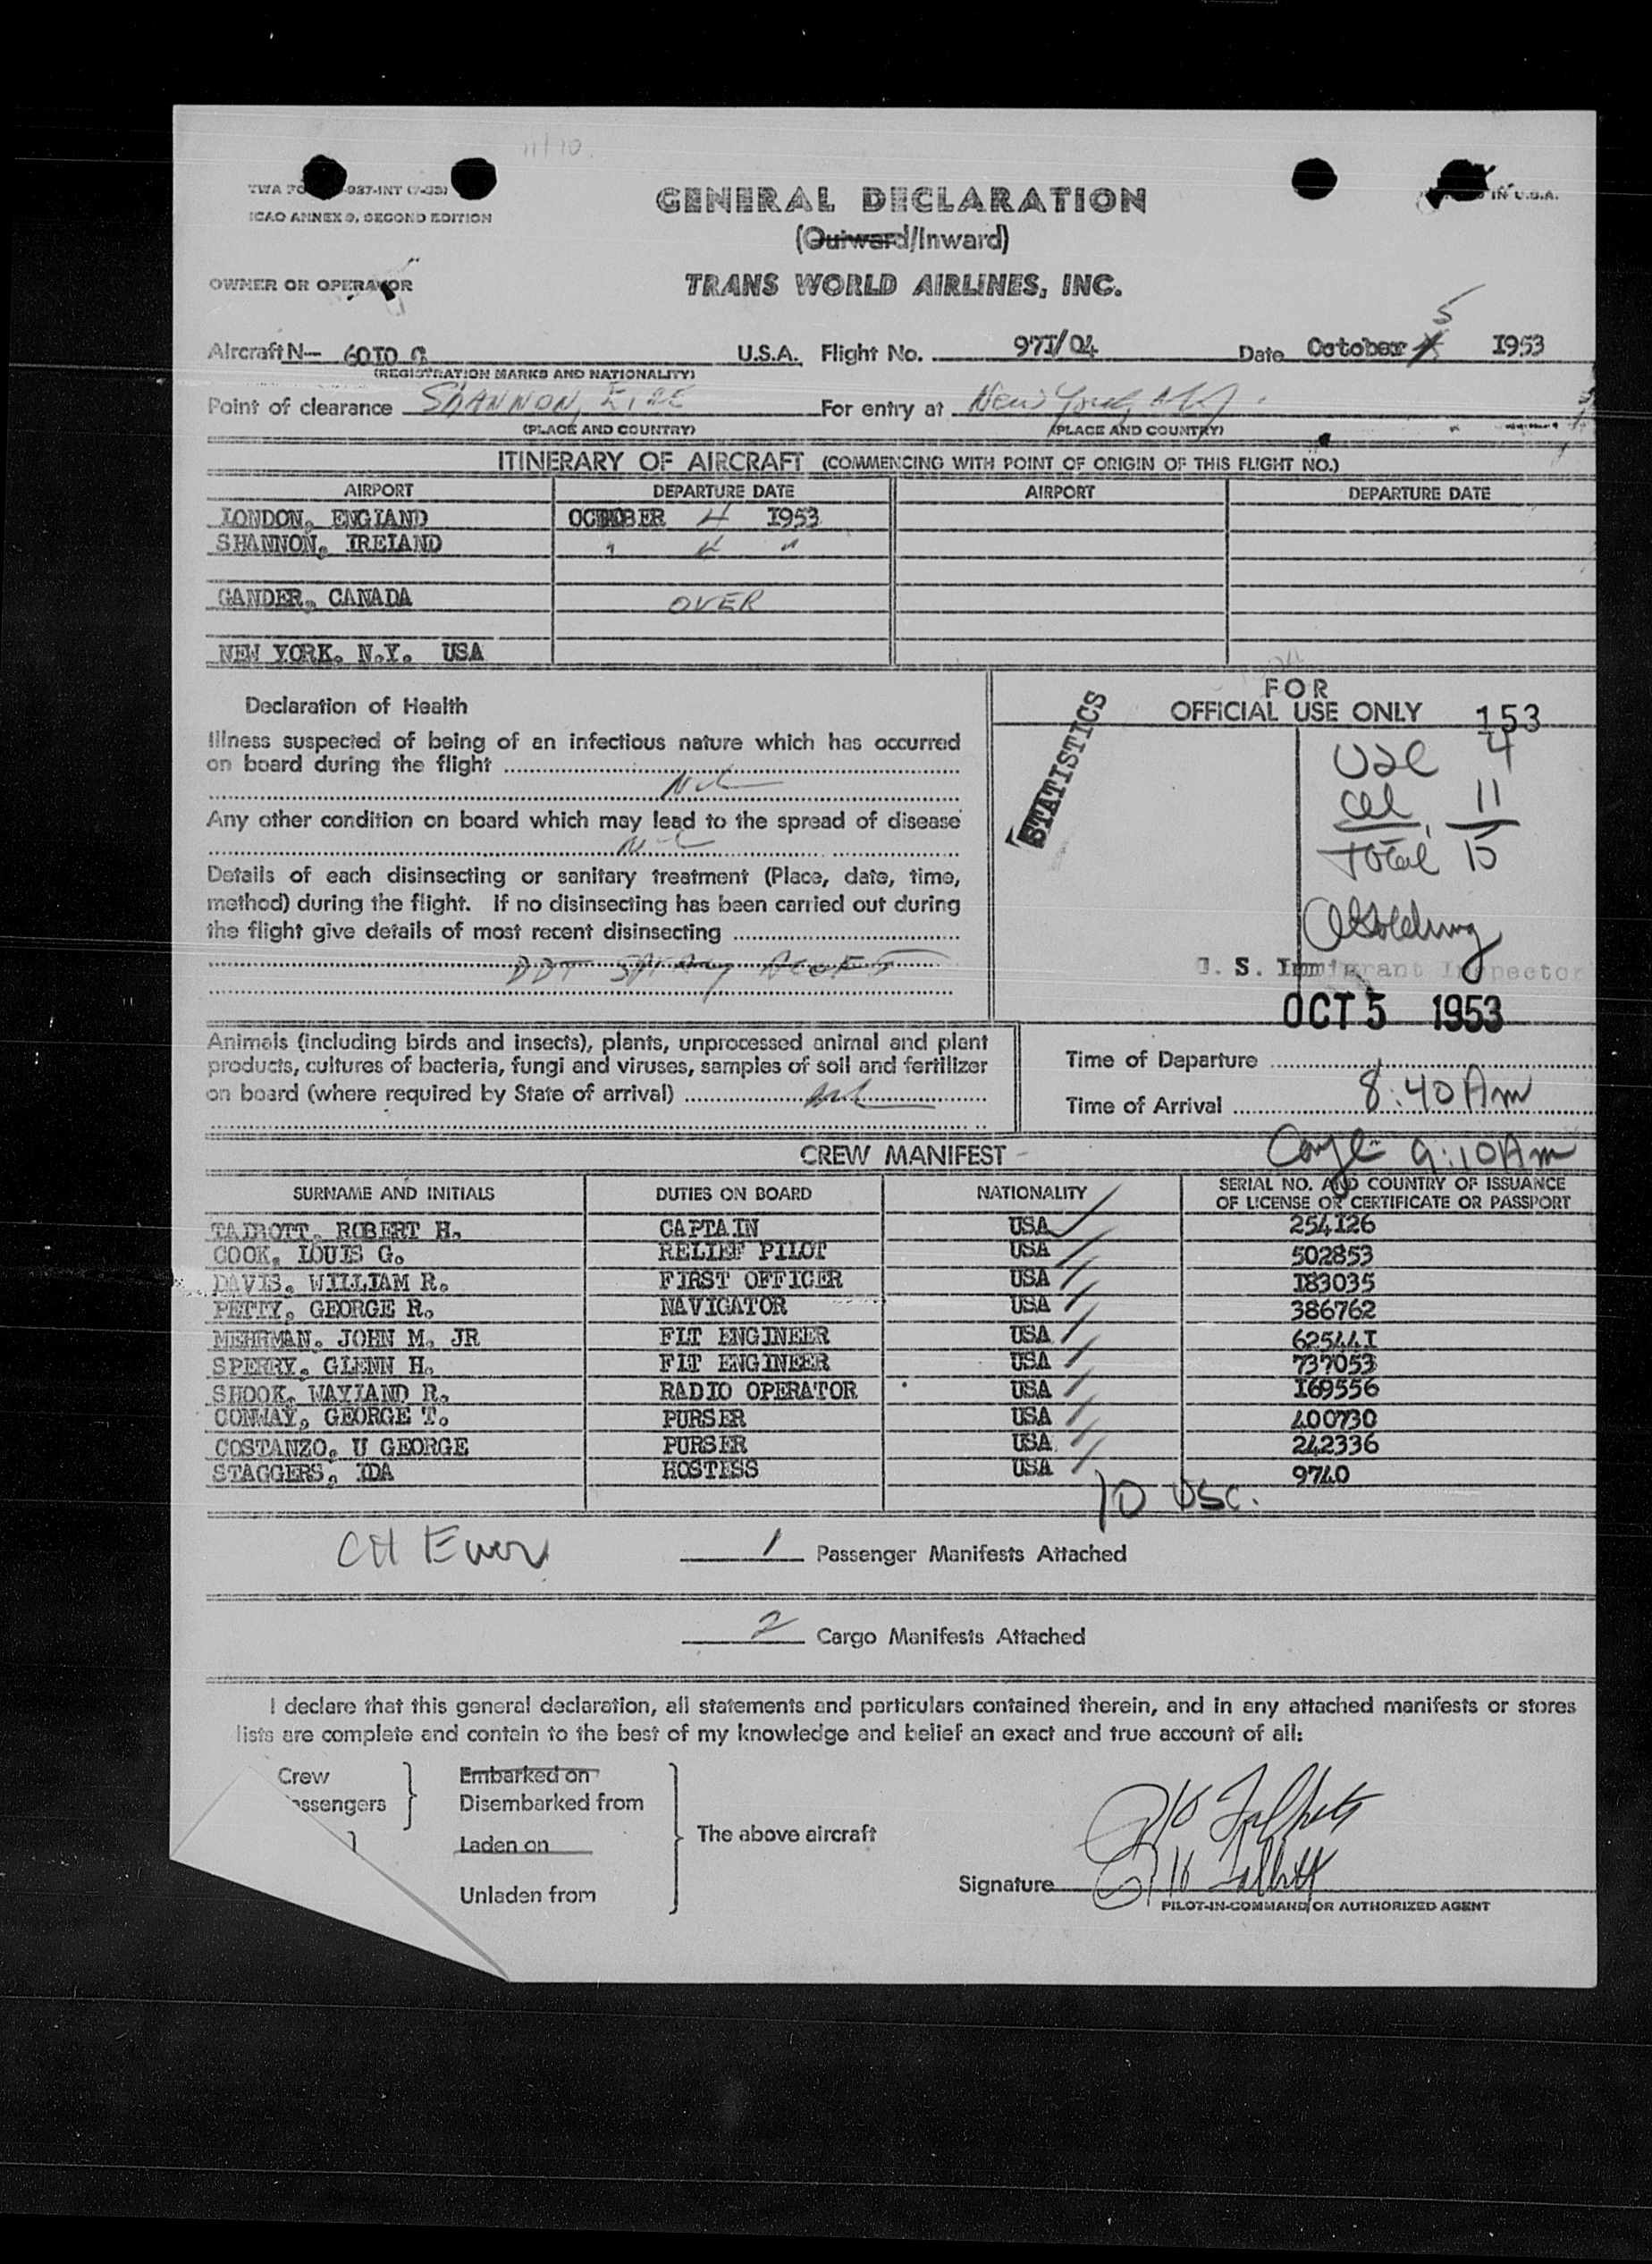 GENERAL DECLARATION
ICAO ANNEX 9, SECOND EDITION
(Outward/Inward)
OWNER OR OPERATOR
TRANS WORLD AIRLINES, INC.
Aircraft N— U.S.A. Flight No. 971/04 Date October 5 1953
(REGISTRATION MARKS AND NATIONALITY)
Point of clearance SHANNON, EIRE For entry at New York, N.Y.
(PLACE AND COUNTRY) (PLACE AND COUNTRY)
ITINERARY OF AIRCRAFT (COMMENCING WITH POINT OF ORIGIN OF THIS FLIGHT NO.)
AIRPORT DEPARTURE DATE AIRPORT DEPARTURE DATE
LONDON, ENGLAND OCTOBER 4 1953
SHANNON, IRELAND " 4 "
GANDER, CANADA OVER
NEW YORK, N.Y. USA
Declaration of Health
Illness suspected of being of an infectious nature which has occurred
on board during the flight
Nil
Any other condition on board which may lead to the spread of disease
Nil
Details of each disinsecting or sanitary treatment (Place, date, time,
method) during the flight. If no disinsecting has been carried out during
the flight give details of most recent disinsecting
DDT SPRAY
FOR
OFFICIAL USE ONLY 153
STATISTICS
USC 4
Al 11
Total 15
U. S. Immigrant Inspector
OCT 5 1953
Animals (including birds and insects), plants, unprocessed animal and plant
products, cultures of bacteria, fungi and viruses, samples of soil and fertilizer
on board (where required by State of arrival) Nil
Time of Departure
Time of Arrival 8:40 Am
9:10 Am
CREW MANIFEST
SURNAME AND INITIALS DUTIES ON BOARD NATIONALITY SERIAL NO. AND COUNTRY OF ISSUANCE
OF LICENSE OR CERTIFICATE OR PASSPORT
ROBERT H. CAPTAIN USA 254126
COOK, LOUIS G. RELIEF PILOT USA 502853
DAVIS, WILLIAM R. FIRST OFFICER USA 183035
PETTY, GEORGE R. NAVIGATOR USA 386762
MEHRMAN, JOHN M. JR FLT ENGINEER USA 625441
SPERRY, GLENN H. FLT ENGINEER USA 737053
SHOOK, WAYLAND R. RADIO OPERATOR USA 169556
CONWAY, GEORGE T. PURSER USA 400730
COSTANZO, U GEORGE PURSER USA 242336
STAGGERS, IDA HOSTESS USA 9740
10 USC.
1 Passenger Manifests Attached
2 Cargo Manifests Attached
I declare that this general declaration, all statements and particulars contained therein, and in any attached manifests or stores
lists are complete and contain to the best of my knowledge and belief an exact and true account of all:
Crew
Embarked on
Disembarked from
Laden on
Unladen from
The above aircraft
Signature
PILOT-IN-COMMAND OR AUTHORIZED AGENT